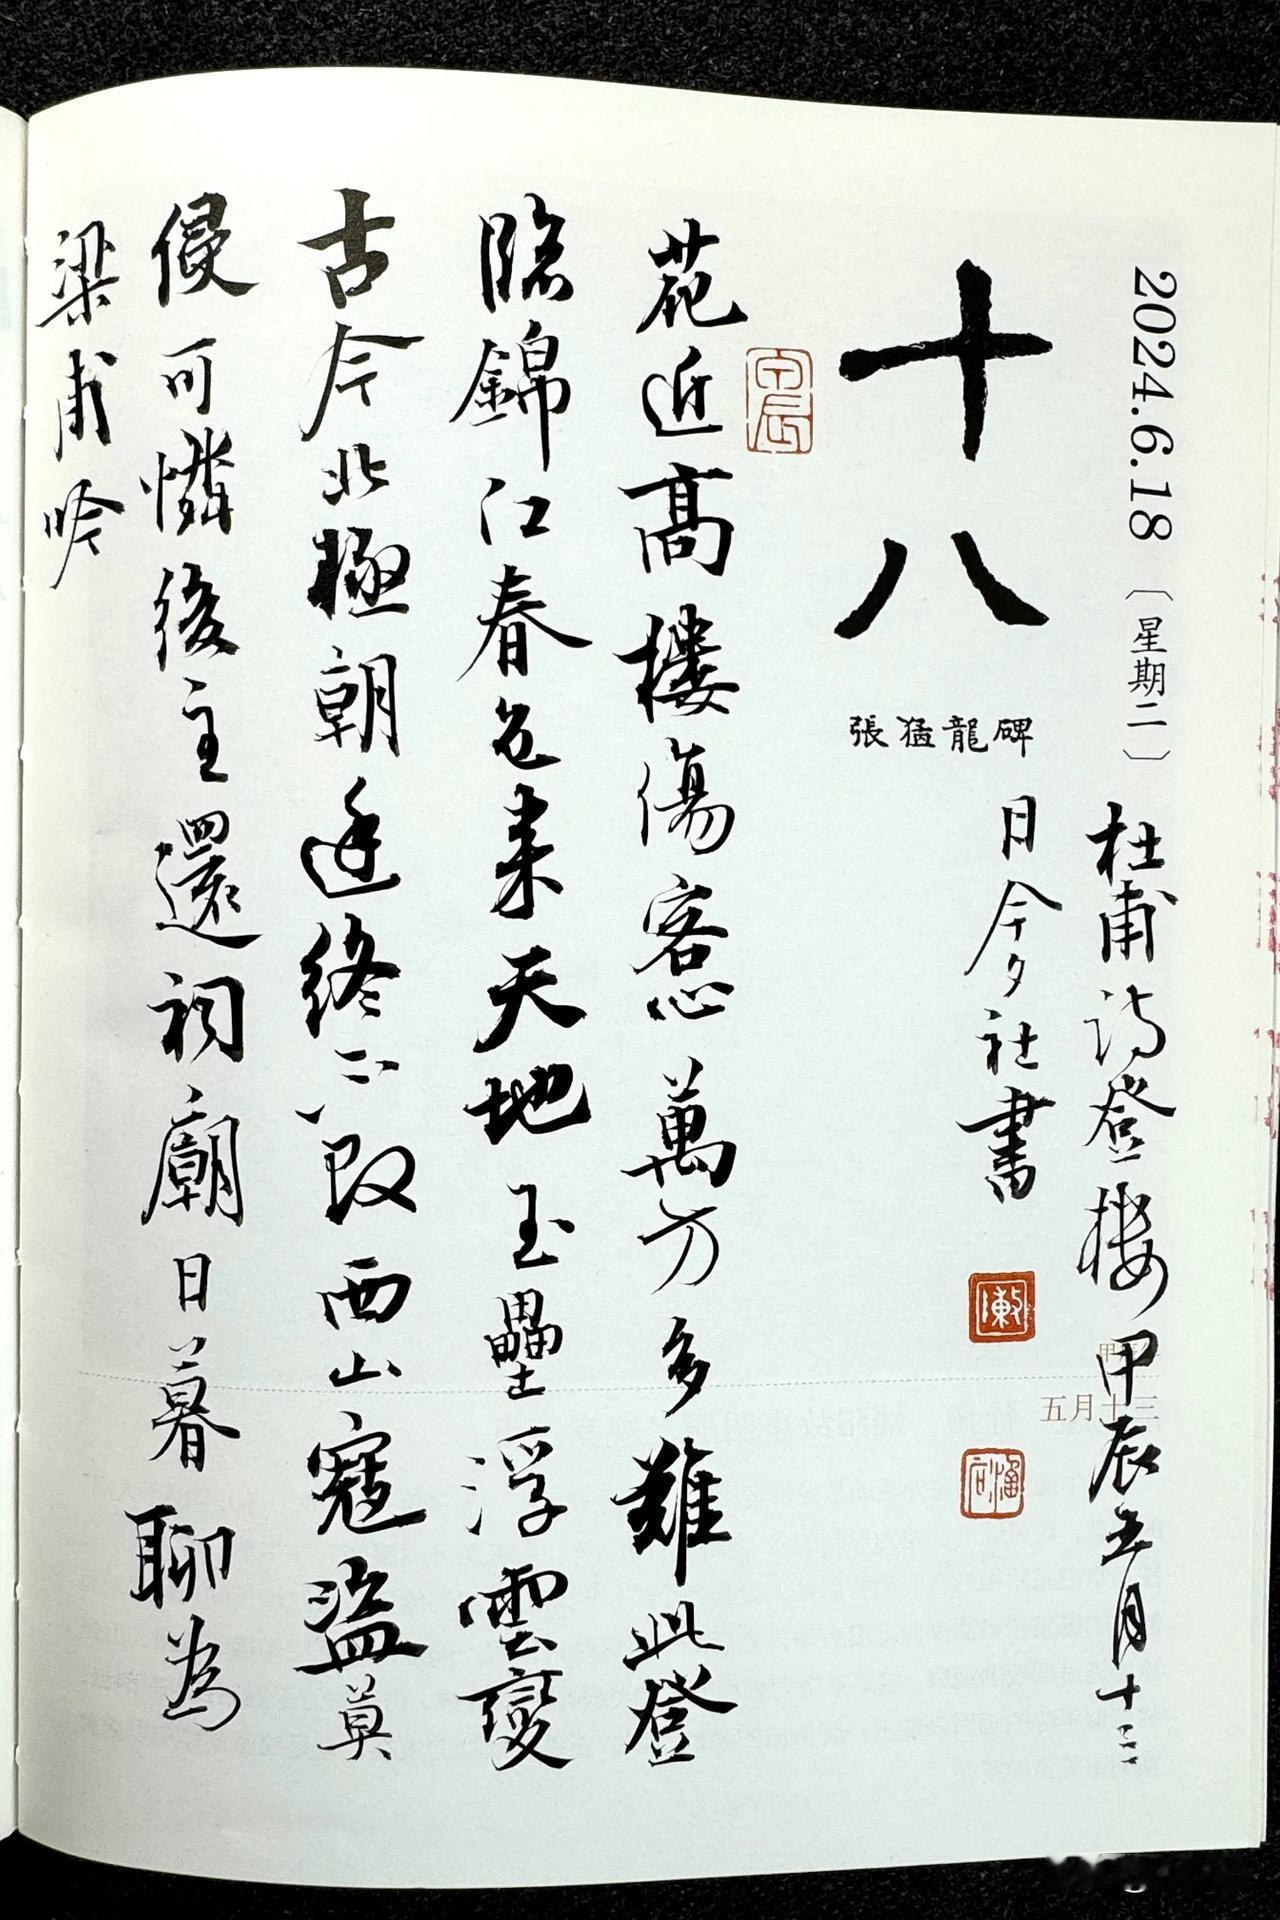 2024.6.18〔星期二〕
杜甫詩登樓甲辰五月十三
五月十三
十八
張猛龍碑
日今夕社書
花近高樓傷客心萬方多難此登
臨錦江春色來天地玉壘浮雲變
古今北極朝廷終不改西山寇盜莫
侵可憐後主還祠廟日暮聊為
梁甫吟